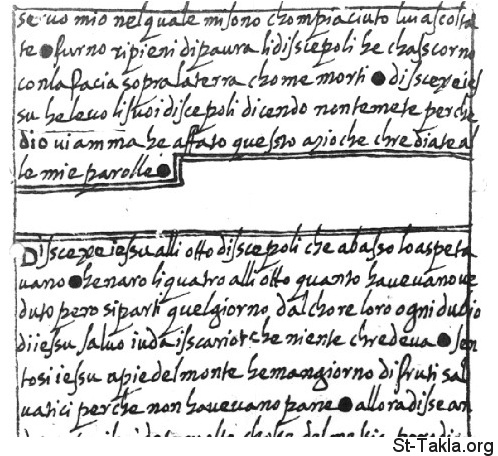 seruo mio nel quale mi sono chompiaciuto lui ascolta
te ● furno ripieni di paura li disscepoli he chasscorno
con la facia sopra la terra chome morti ● disscexe ies
su he leuo li suoi disscepoli dicendo non temete perche
dio ui amma he affato quessto azioche chrediate al
le mie parolle ●
Disscexe iessu alli otto disscepoli che abasso lo aspeta
uano ● he naro li quatro alli otto quanto haueuano ue
duto pero si parti quel giorno dal chore loro ogni dubio
di iessu saluo iuda isscariot che niente chredeua ● sen
tosi iessu a pie del monte he mangiorno di fruti sal
uatici perche non haueuano pane ● allora disse an
St-Takla.org